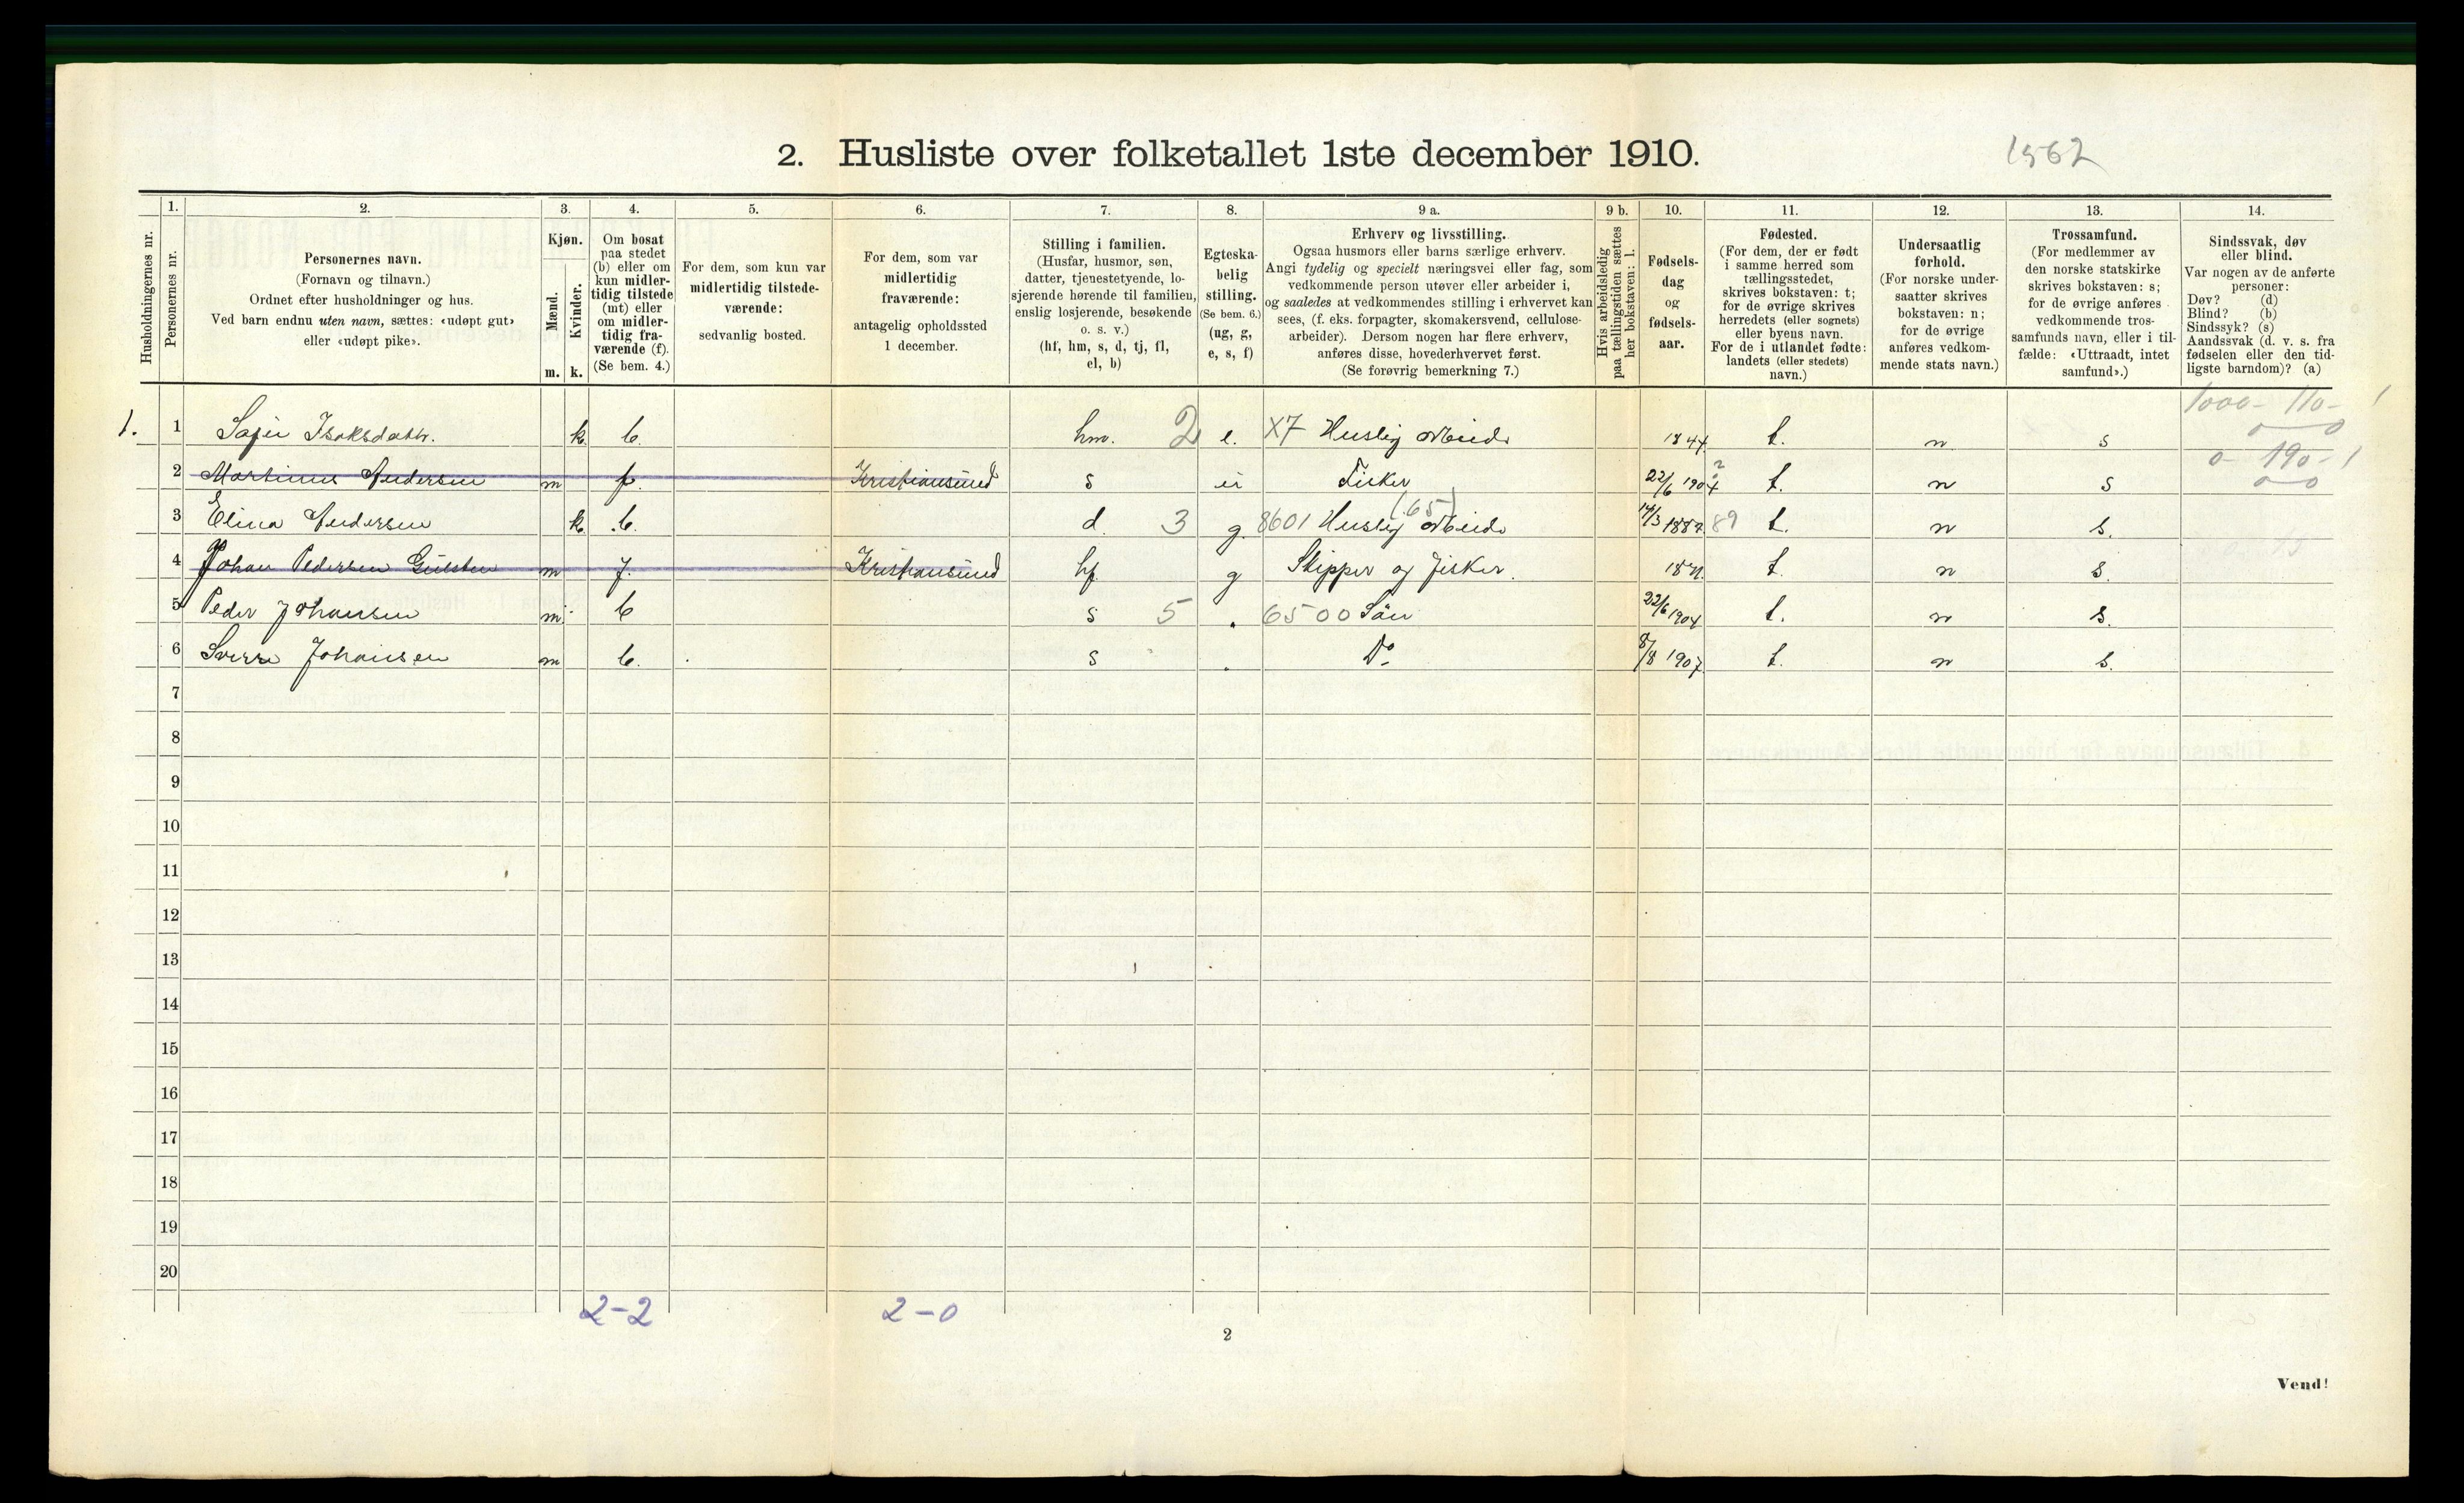 2. Husliste over folketallet 1ste december 1910.
1562
Husholdningernes nr.
1.
Personernes nr.
2.
Personernes navn.
(Fornavn og tilnavn.)
Ordnet efter husholdninger og hus.
Ved barn endnu uten navn, sættes: «udøpt gut»
eller «udøpt pike».
3.
Kjøn.
Mænd.
Kvinder.
m. k.
4.
Om bosat
paa stedet
(b) eller om
kun midler-
tidig tilstede
(mt) eller
om midler-
tidig fra-
værende (f).
(Se bem. 4.)
5.
For dem, som kun var
midlertidig tilstede-
værende:
sedvanlig bosted.
6.
For dem, som var
midlertidig
fraværende:
antagelig opholdssted
1 december.
7.
Stilling i familien.
(Husfar, husmor, søn,
datter, tjenestetyende, lo-
sjerende hørende til familien,
enslig losjerende, besøkende
o. s. v.)
(hf, hm, s, d, tj, fl,
el, b)
8.
Egteska-
belig
stilling.
(Se bem. 6.)
(ug, g,
e, s, f)
9 a.
Erhverv og livsstilling.
Ogsaa husmors eller barns særlige erhverv.
Angi tydelig og specielt næringsvei eller fag, som
vedkommende person utøver eller arbeider i,
og saaledes at vedkommendes stilling i erhvervet kan
sees, (f. eks. forpagter, skomakersvend, cellulose-
arbeider). Dersom nogen har flere erhverv,
anføres disse, hovederhvervet først.
(Se forøvrig bemerkning 7.)
9 b.
Hvis arbeidsledig
paa tællingstiden sættes
her bokstaven: l.
10.
Fødsels-
dag
og
fødsels-
aar.
11.
Fødested.
(For dem, der er født
i samme herred som
tællingsstedet,
skrives bokstaven: t;
for de øvrige skrives
herredets (eller sognets)
eller byens navn.
For de i utlandet fødte:
landets (eller stedets)
navn.)
12.
Undersaatlig
forhold.
(For norske under-
saatter skrives
bokstaven: n;
for de øvrige
anføres vedkom-
mende stats navn.)
13.
Trossamfund.
(For medlemmer av
den norske statskirke
skrives bokstaven: s;
for de øvrige anføres
vedkommende tros-
samfunds navn, eller i til-
fælde: «Uttraadt, intet
samfund».)
14.
Sindssvak, døv
eller blind.
Var nogen av de anførte
personer:
Døv? (d)
Blind? (b)
Sindssyk? (s)
Aandssvak (d. v. s. fra
fødselen eller den tid-
ligste barndom)? (a)
1000- 110- 1
1. 1 Isaksdattr. k b. hm. 2 e. X7 Huslig arbeide 1844. t. n s
0- 190- 1
2 Martinus Andersen m f. Kristiansund s Fisker 22/6 1904 t. n s
3 Elina Andersen k b. d 3 g. 8601 Huslig (65) arbeide 14/3 1887. 89 t. n s.
4 Johan Pedersen m f. Kristiansund hf g Skipper og fisker. t. n s.
5 Peder Johansen m b s 5 . 6500 Sön 22/6 1904 t. n s.
6 Sverre Johansen m b. s . Do 8/8 1907. t. n s.
7
8
9
10
11
12
13
14
15
16
17
18
19
20
2-2 2-0
2
Vend!